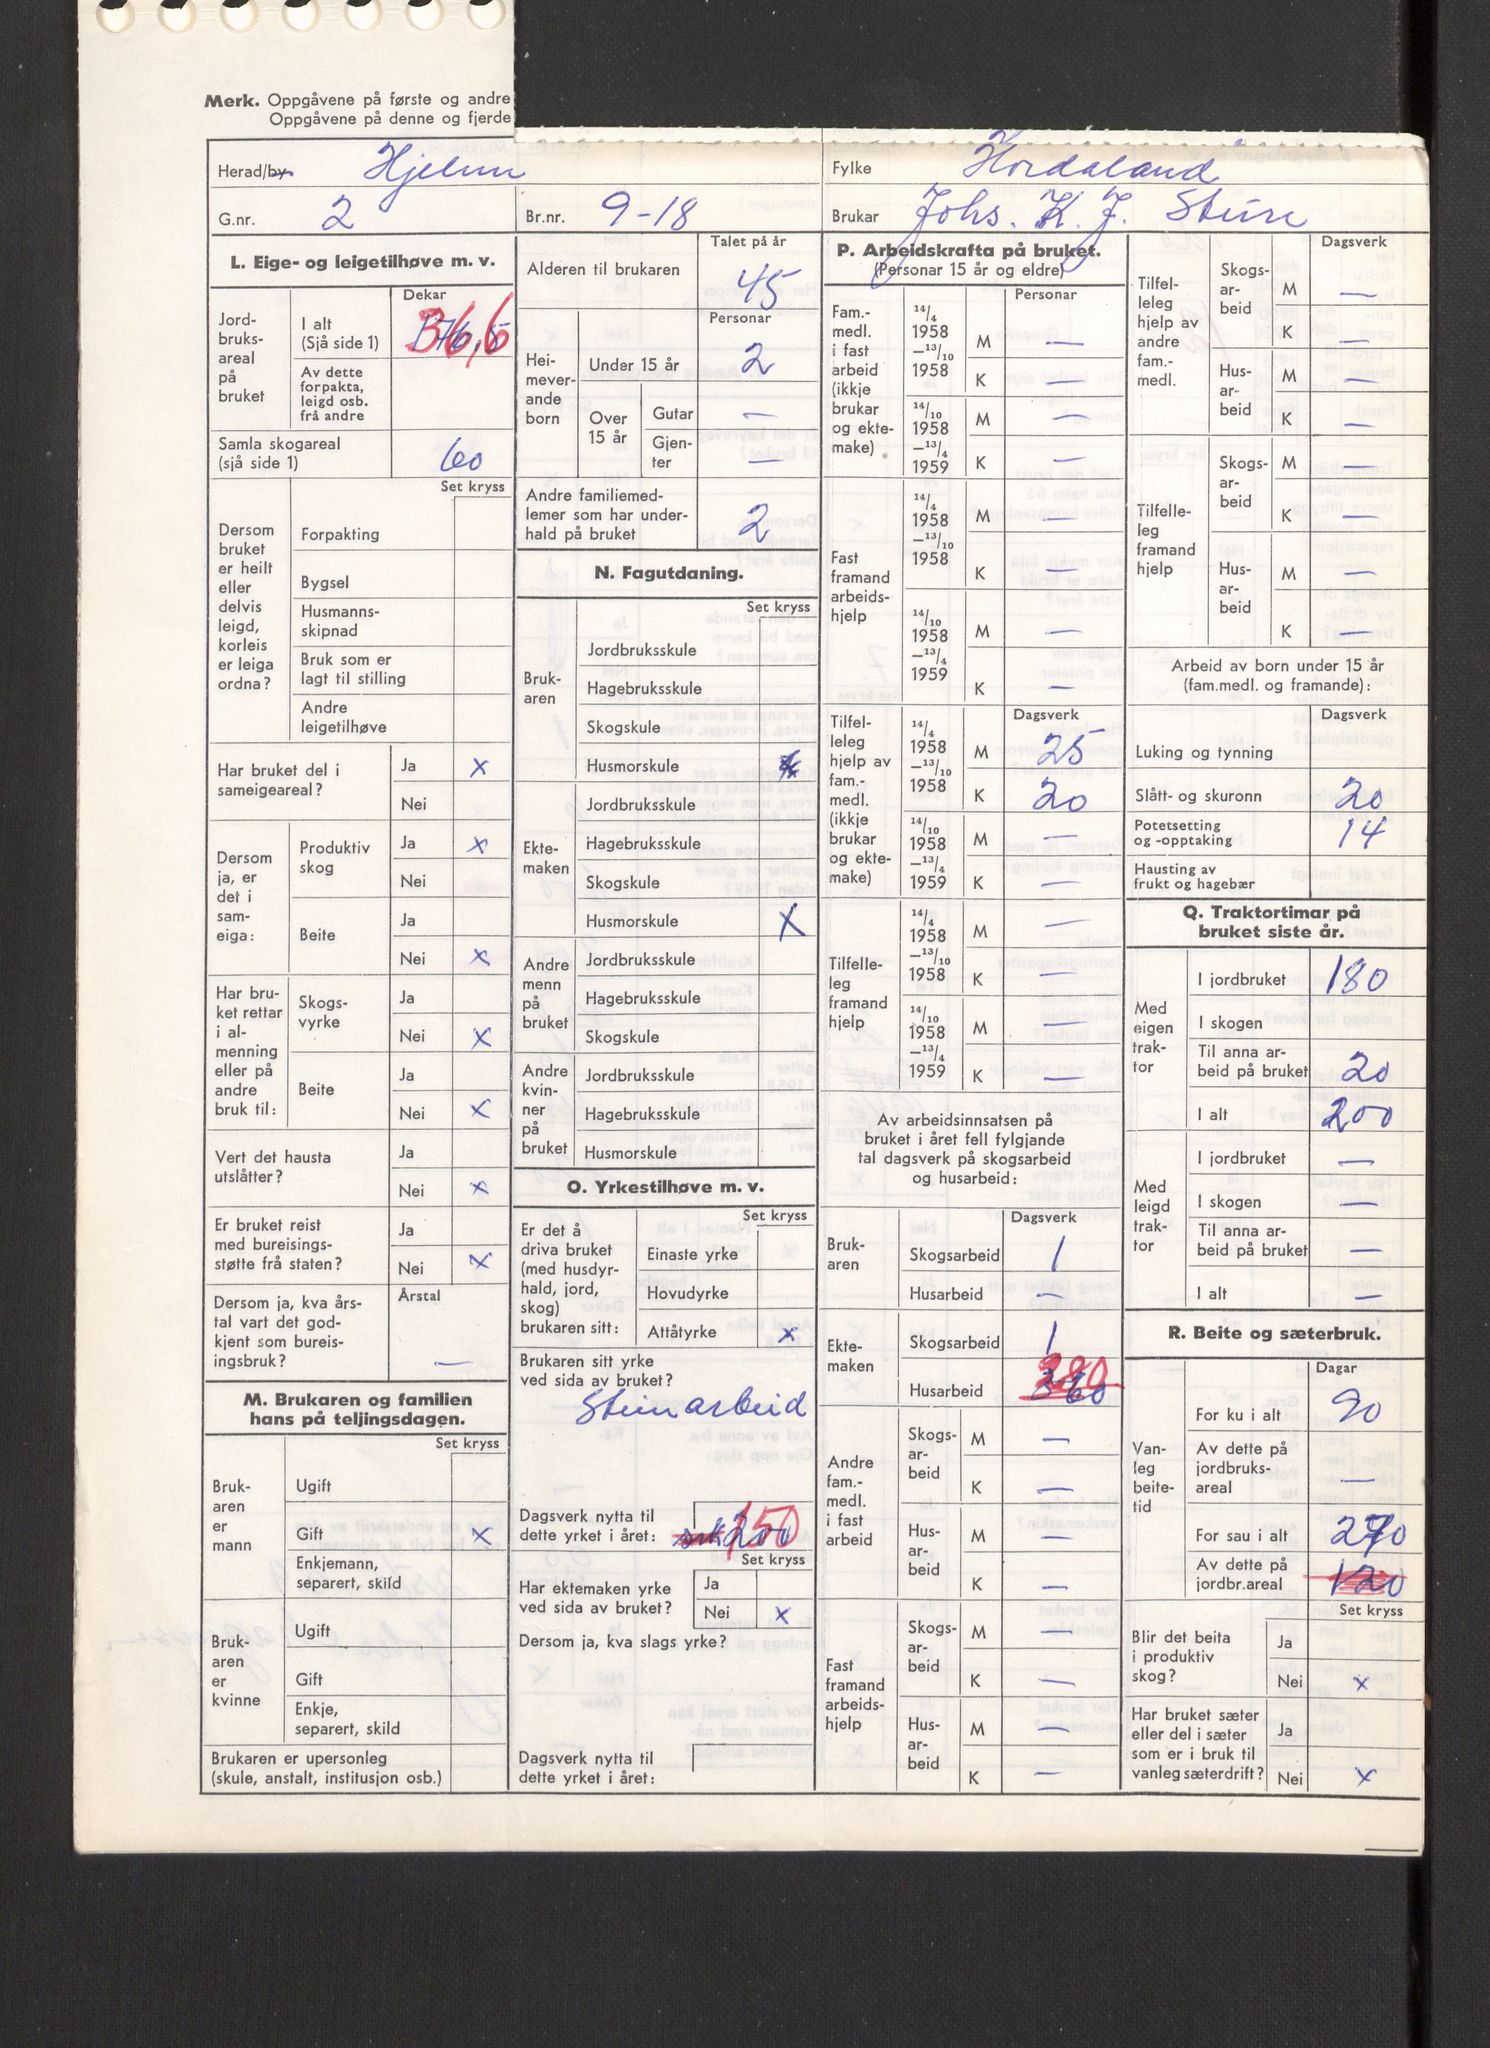 Merk. Oppgåvene på første og andre
Oppgåvene på denne og fjerde
Herad/by Hjelme
Fylke Hordaland
G.nr. 2
Br.nr. 9-18
Brukar Johs. K. J. Sture
L. Eige- og leigetilhøve m. v.
Dekar
Jord-
bruks-
areal
på
bruket
I alt
(Sjå side 1)
36,6
Av dette
forpakta,
leigd osb.
frå andre
Samla skogareal
(sjå side 1)
60
Set kryss
Dersom
bruket
er heilt
eller
delvis
leigd,
korleis
er leiga
ordna?
Forpakting
Bygsel
Husmanns-
skipnad
Bruk som er
lagt til stilling
Andre
leigetilhøve
Har bruket del i
sameigeareal?
Ja x
Nei
Dersom
ja, er
det i
sam-
eiga:
Produktiv
skog
Ja x
Nei
Beite
Ja
Nei x
Har bru-
ket rettar
i al-
menning
eller på
andre
bruk til:
Skogs-
vyrke
Ja
Nei x
Beite
Ja
Nei x
Vert det hausta
utslåtter?
Ja
Nei x
Er bruket reist
med bureisings-
støtte frå staten?
Ja
Nei x
Dersom ja, kva års-
tal vart det god-
kjent som bureis-
ingsbruk?
Årstal
—
M. Brukaren og familien
hans på teljingsdagen.
Set kryss
Bruk-
aren
er
mann
Ugift
Gift x
Enkjemann,
separert, skild
Bruk-
aren
er
kvinne
Ugift
Gift
Enkje,
separert, skild
Brukaren er upersonleg
(skule, anstalt, institusjon osb.)
Talet på år
Alderen til brukaren 45
Personar
Hei-
mever-
ande
born
Under 15 år 2
Over
15 år
Gutar —
Gjen-
ter —
Andre familiemed-
lemer som har under-
hald på bruket
2
N. Fagutdaning.
Set kryss
Bruk-
aren
Jordbruksskule
Hagebruksskule
Skogskule
Husmorskule
Ekte-
maken
Jordbruksskule
Hagebruksskule
Skogskule
Husmorskule x
Andre
menn
på
bruket
Jordbruksskule
Hagebruksskule
Skogskule
Andre
kvin-
ner
på
bruket
Jordbruksskule
Hagebruksskule
Husmorskule
O. Yrkestilhøve m. v.
Set kryss
Er det å
driva bruket
(med husdyr-
hald, jord,
skog)
brukaren sitt:
Einaste yrke
Hovudyrke
Attåtyrke x
Brukaren sitt yrke
ved sida av bruket?
Steinarbeid
Dagsverk nytta til
dette yrket i året: 200 150
Set kryss
Har ektemaken yrke
ved sida av bruket?
Ja
Nei x
Dersom ja, kva slags yrke?
Dagsverk nytta til
dette yrket i året:
P. Arbeidskrafta på bruket.
(Personar 15 år og eldre)
Personar
Fam.-
medl.
i fast
arbeid
(ikkje
brukar
og ekte-
make)
14/4
1958
—13/10
1958
M —
K —
14/10
1958
—13/4
1959
M —
K —
Fast
framand
arbeids-
hjelp
14/4
1958
—13/10
1958
M —
K —
14/10
1958
—13/4
1959
M —
K —
Dagsverk
Tilfel-
leleg
hjelp av
fam.-
medl.
(ikkje
brukar
og ekte-
make)
14/4
1958
—13/10
1958
M 25
K 20
14/10
1958
—13/4
1959
M —
K —
Tilfelle-
leg
framand
hjelp
14/4
1958
—13/10
1958
M —
K —
14/10
1958
—13/4
1959
M —
K —
Av arbeidsinnsatsen på
bruket i året fell fylgjande
tal dagsverk på skogsarbeid
og husarbeid:
Dagsverk
Bruk-
aren
Skogsarbeid 1
Husarbeid —
Ekte-
maken
Skogsarbeid 1
Husarbeid
Andre
fam.-
medl.
i fast
arbeid
Skogs-
ar-
beid
M —
K —
Hus-
ar-
beid
M —
K —
Fast
framand
arbeids-
hjelp
Skogs-
ar-
beid
M —
K —
Hus-
ar-
beid
M —
K —
Dagsverk
Tilfel-
leleg
hjelp av
andre
fam.-
medl.
Skogs-
ar-
beid
M —
K —
Hus-
ar-
beid
M —
K —
Tilfelle-
leg
framand
hjelp
Skogs-
ar-
beid
M —
K —
Hus-
ar-
beid
M —
K —
Arbeid av born under 15 år
(fam.medl. og framande):
Dagsverk
Luking og tynning
Slått- og skuronn 20
Potetsetting
og -opptaking 14
Hausting av
frukt og hagebær
Q. Traktortimar på
bruket siste år.
Med
eigen
trak-
tor
I jordbruket 180
I skogen
Til anna ar-
beid på bruket 20
I alt 200
Med
leigd
trak-
tor
I jordbruket —
I skogen —
Til anna ar-
beid på bruket —
I alt —
R. Beite og sæterbruk.
Dagar
Van-
leg
beite-
tid
For ku i alt 90
Av dette på
jordbruks-
areal —
For sau i alt 270
Av dette på
jordbr.areal 120
Set kryss
Blir det beita
i produktiv
skog?
Ja
Nei x
Har bruket sæter
eller del i sæter
som er i bruk til
vanleg sæterdrift?
Ja
Nei x